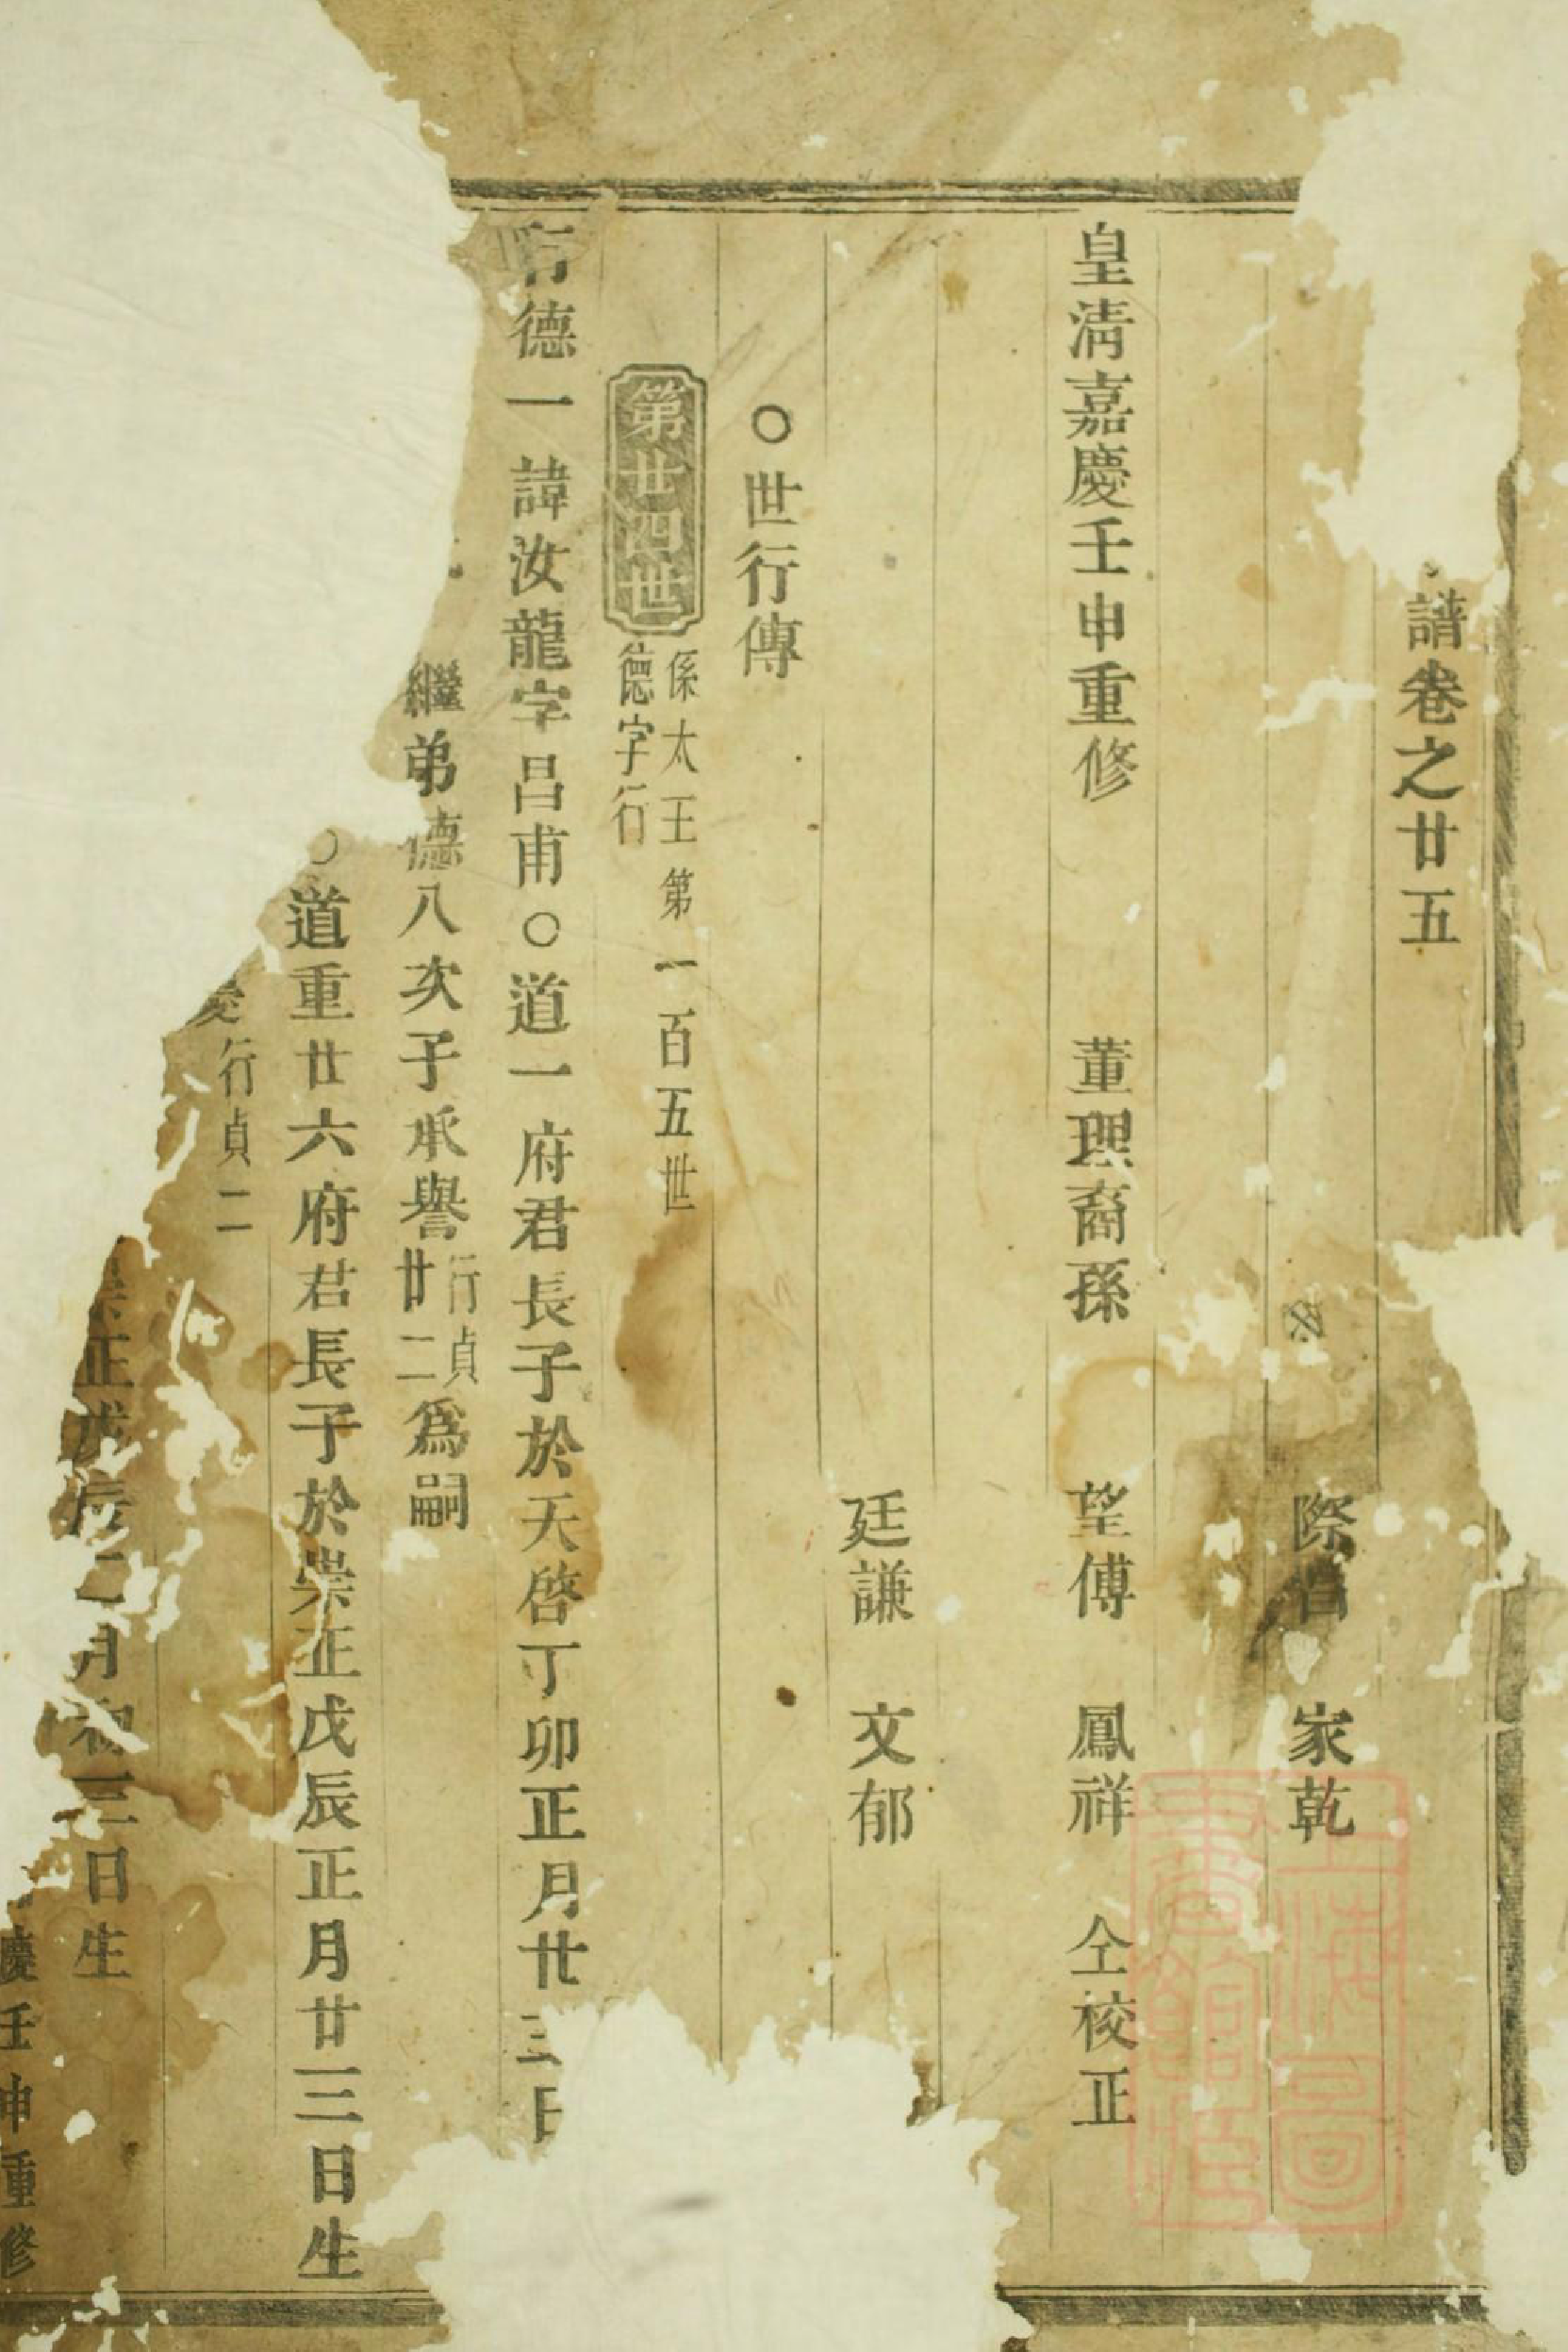 譜卷之廿五
際昌 家乾
皇淸嘉慶壬申重修 董理裔孫 望傅 鳳祥 仝校正
廷謙 文郁
○世行傳
第廿四世 係太王第一百五世
德字行
行德一諱汝龍字呂甫○道一府君長子於天啓丁卯正月廿三日
繼弟德八次子承譽行貞廿二爲嗣
○道重廿六府君長子於崇正戊辰正月廿三日生
行貞二
崇正戊辰二月初三日生
慶壬申重修
上海圖書館藏